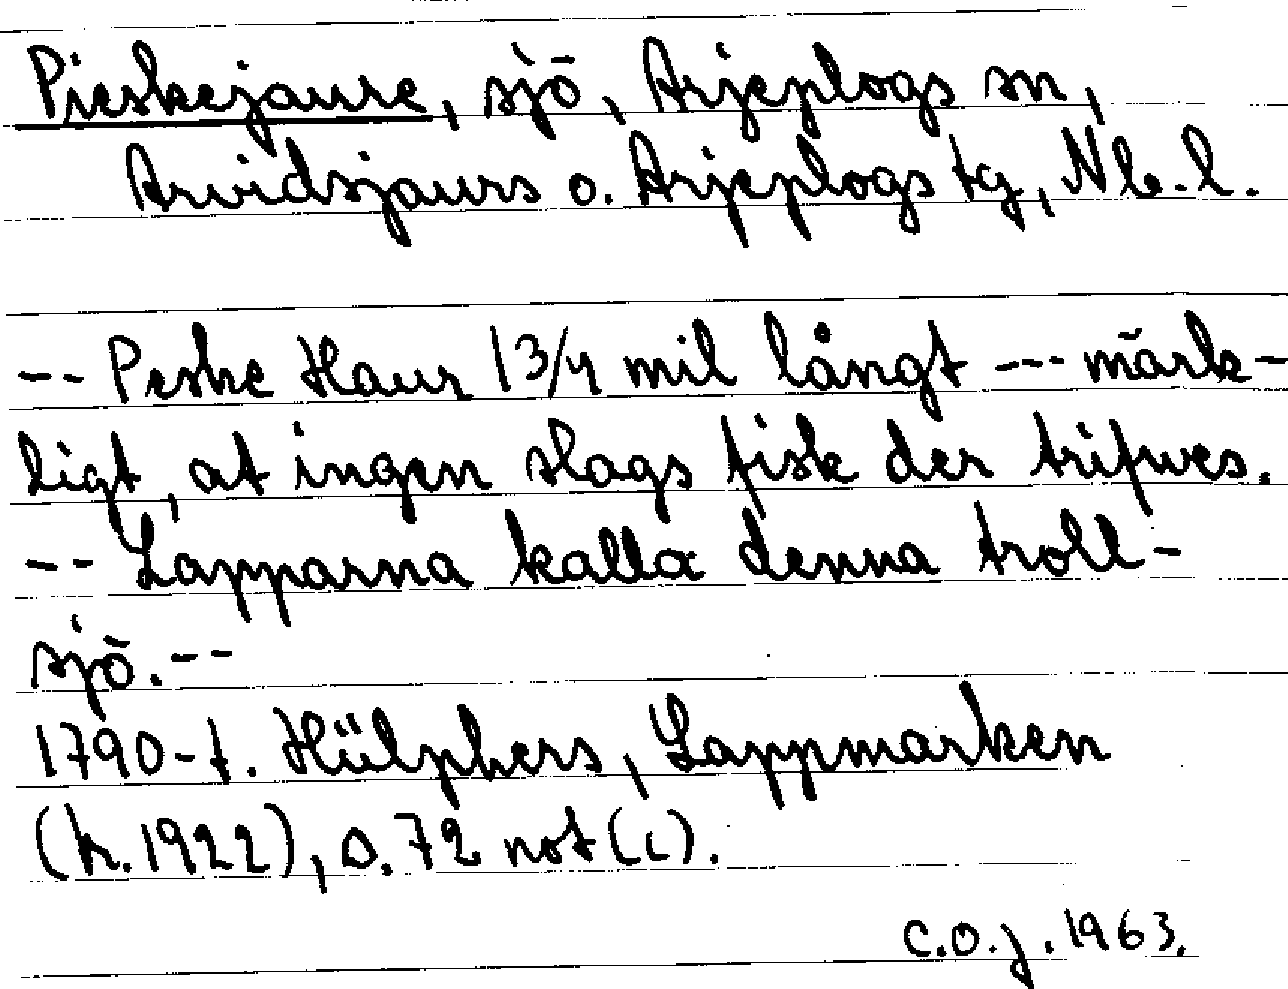 Pieskejaure, sjö, Arjeplogs sn,
Arvidsjaurs o. Arjeplogs tg, Nb.l.
-- Peske Haur 1 3/4 mil långt --- märk-
ligt, at ingen slags fisk der trifwes.
-- Lapparna kalla denna troll-
sjö.--
1790-t. Hülphers, Lappmarken
(tr. 1922), s. 72 not (c).
C.O.J. 1963.